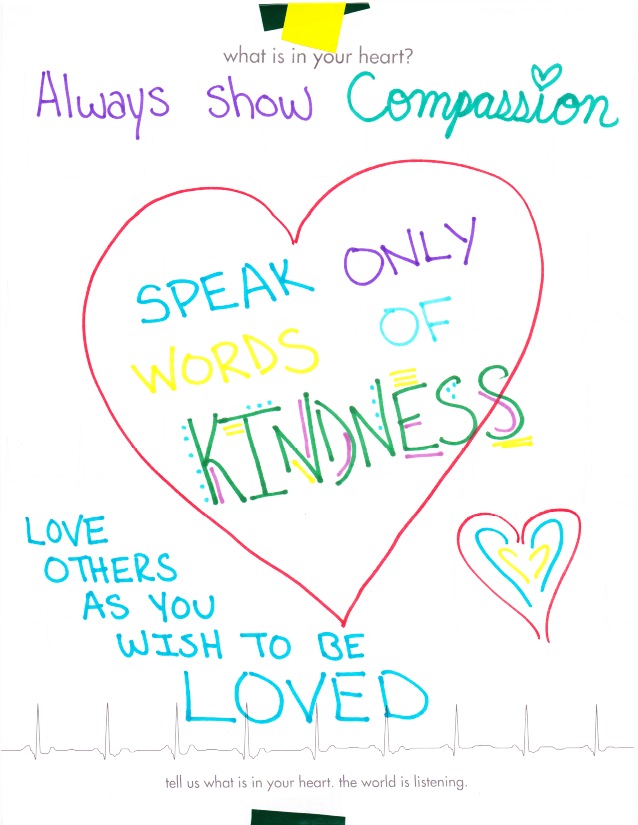 what is in your heart?
Always show Compassion
SPEAK ONLY
WORDS OF
KINDNESS
LOVE
OTHERS
AS YOU
WISH TO BE
LOVED
tell us what is in your heart. the world is listening.